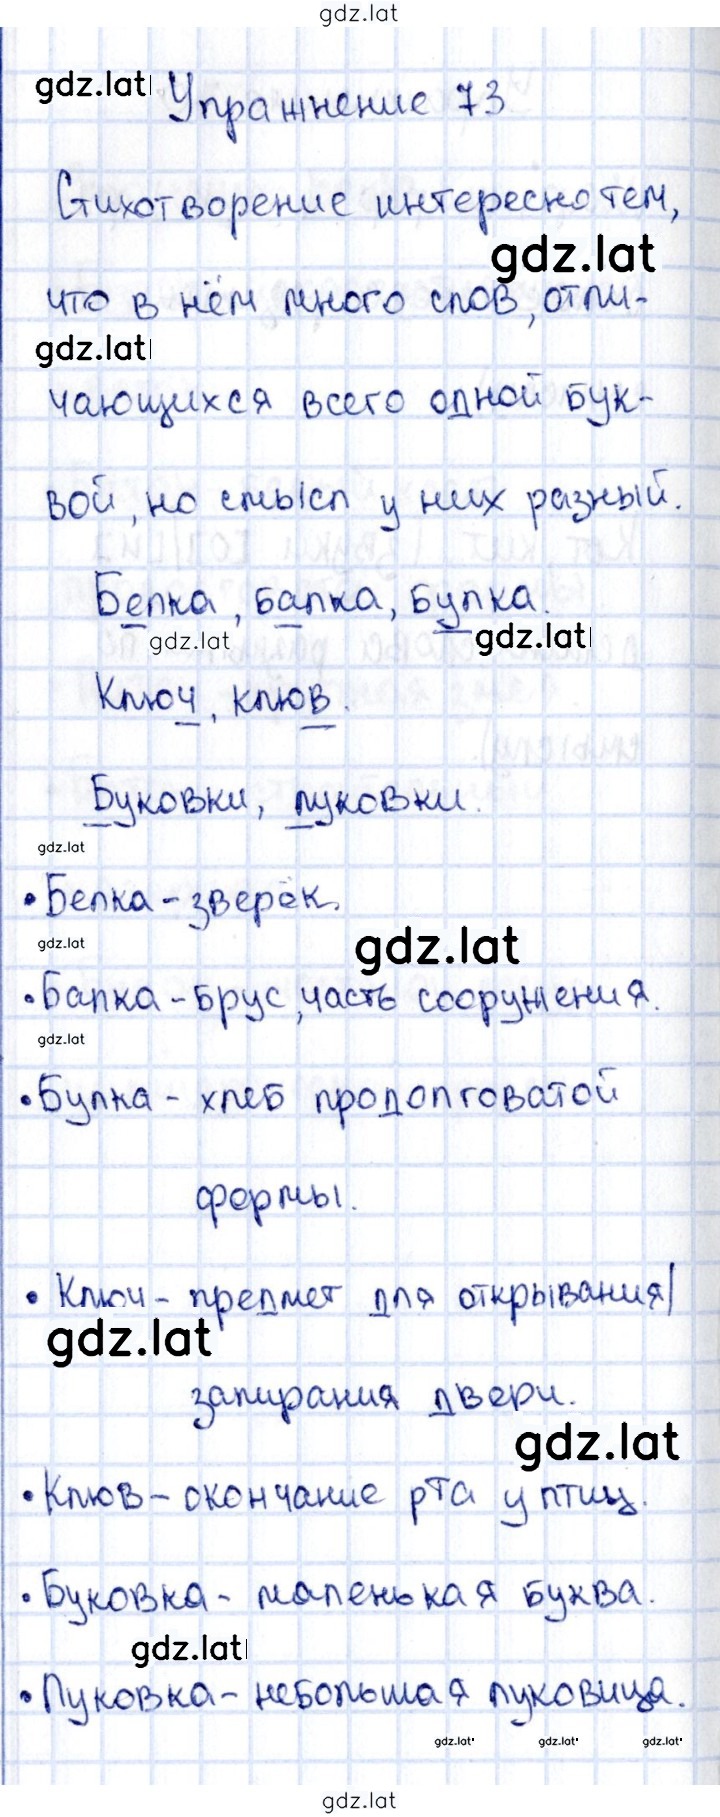 gdz.lat
gdz.lat
Упражнение 73
Стихотворение интересно тем,
gdz.lat
что в нём много слов, отли-
gdz.lat
чающихся всего одной бук-
вой, но смысл у них разный.
Белка, балка, булка.
gdz.lat
gdz.lat
Ключ, клюв.
Буковки, луковки.
gdz.lat
• Белка - зверёк.
gdz.lat
gdz.lat
• Балка - брус, часть сооружения.
gdz.lat
• Булка - хлеб продолговатой
формы.
• Ключ - предмет для открывания/
gdz.lat
запирания двери.
gdz.lat
• Клюв - окончание рта у птиц.
• Буковка - маленькая буква.
gdz.lat
• Луковка - небольшая луковица.
gdz.lat
gdz.lat
gdz.lat
gdz.lat